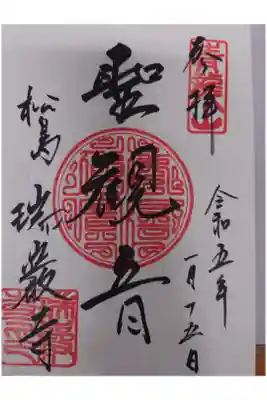 奉拝
令和五年
一月十五日
聖觀音
松島
瑞巌寺